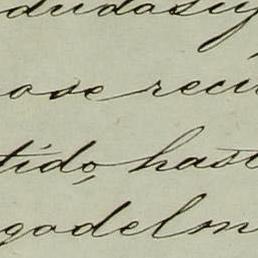 dudasuj
ose reci
tido, hast
godelm